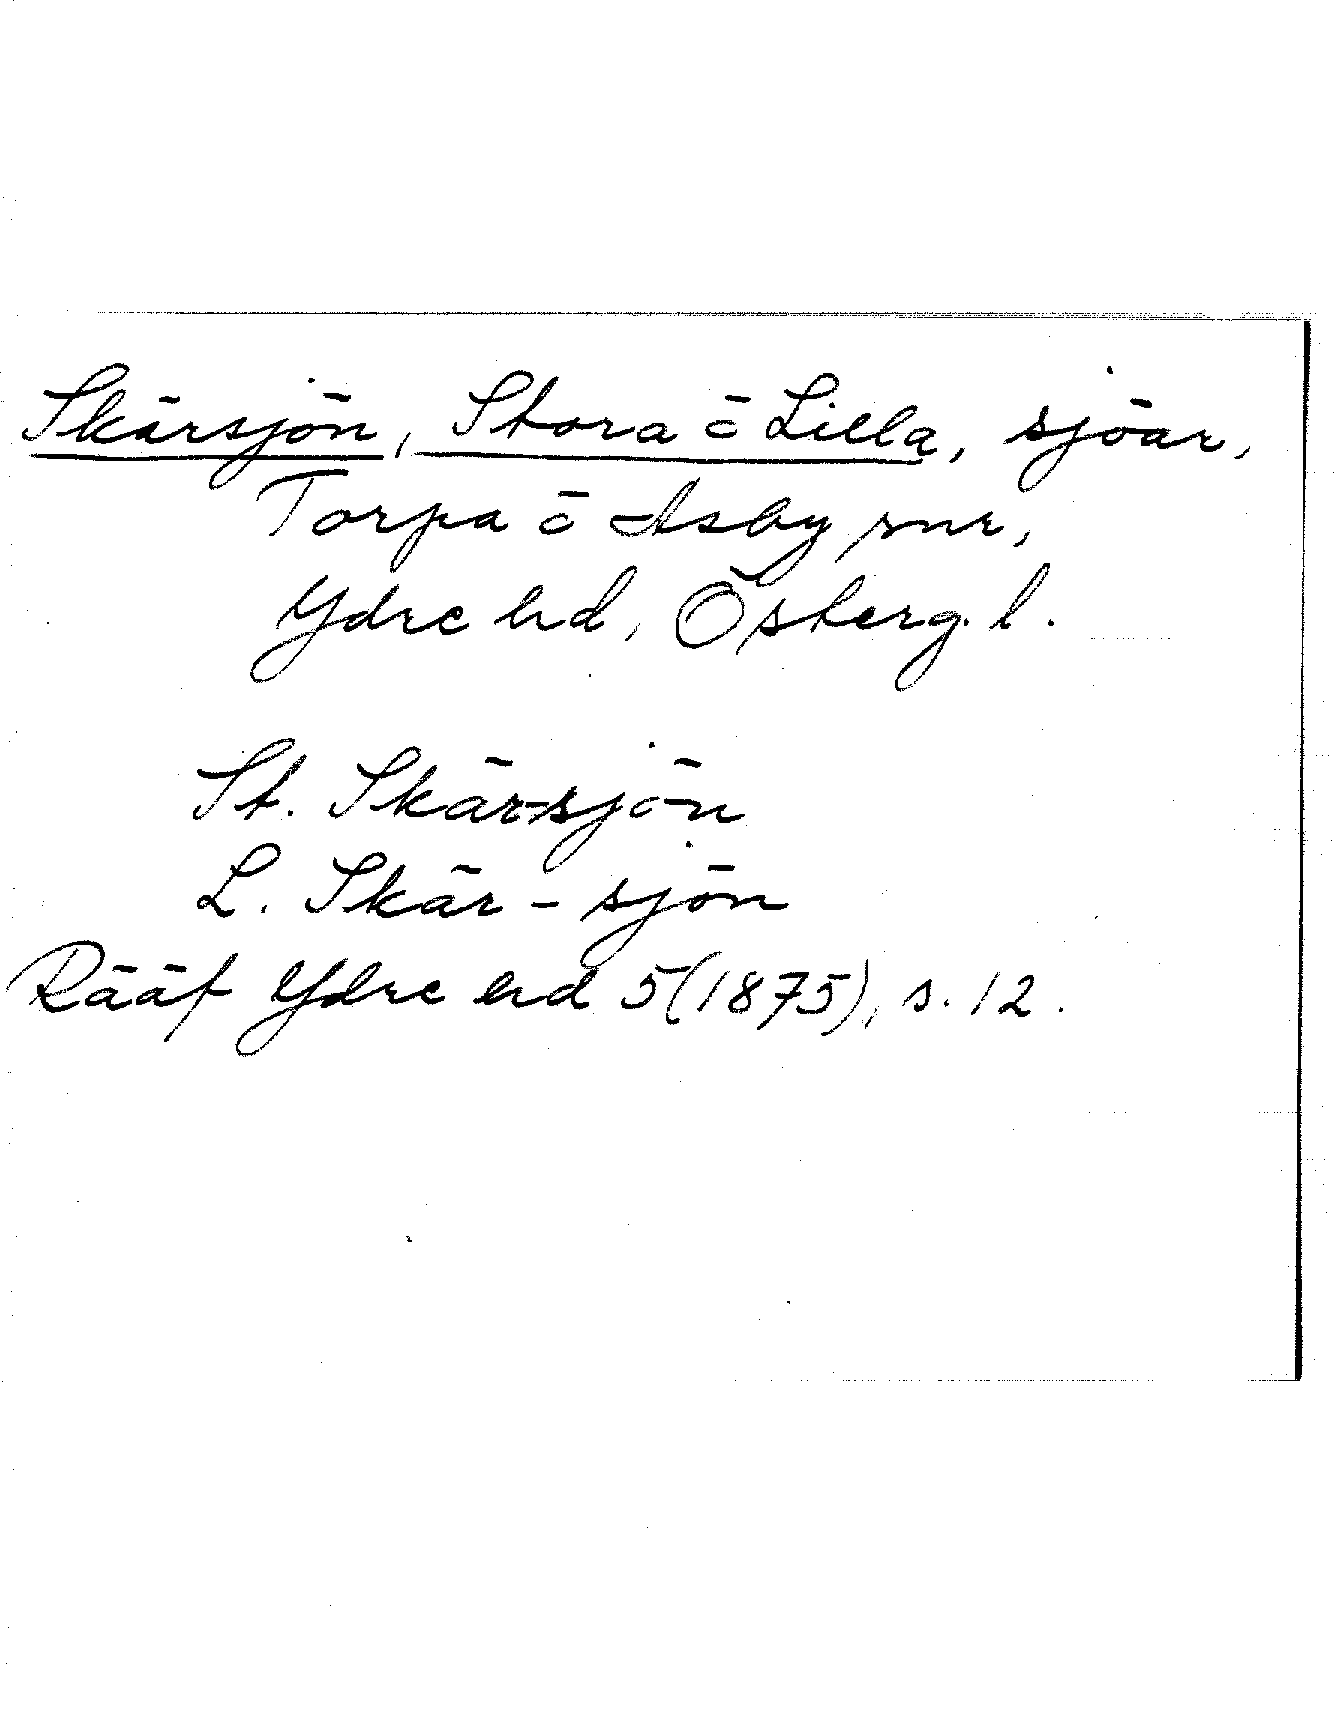 Skärsjön, Stora o Lilla, sjöar,
Torpa o Asby snr,
Ydre hd, Österg. l.
St. Skär-sjön
L. Skär-sjön
Rääf Ydre hd 5 (1875), s. 12.